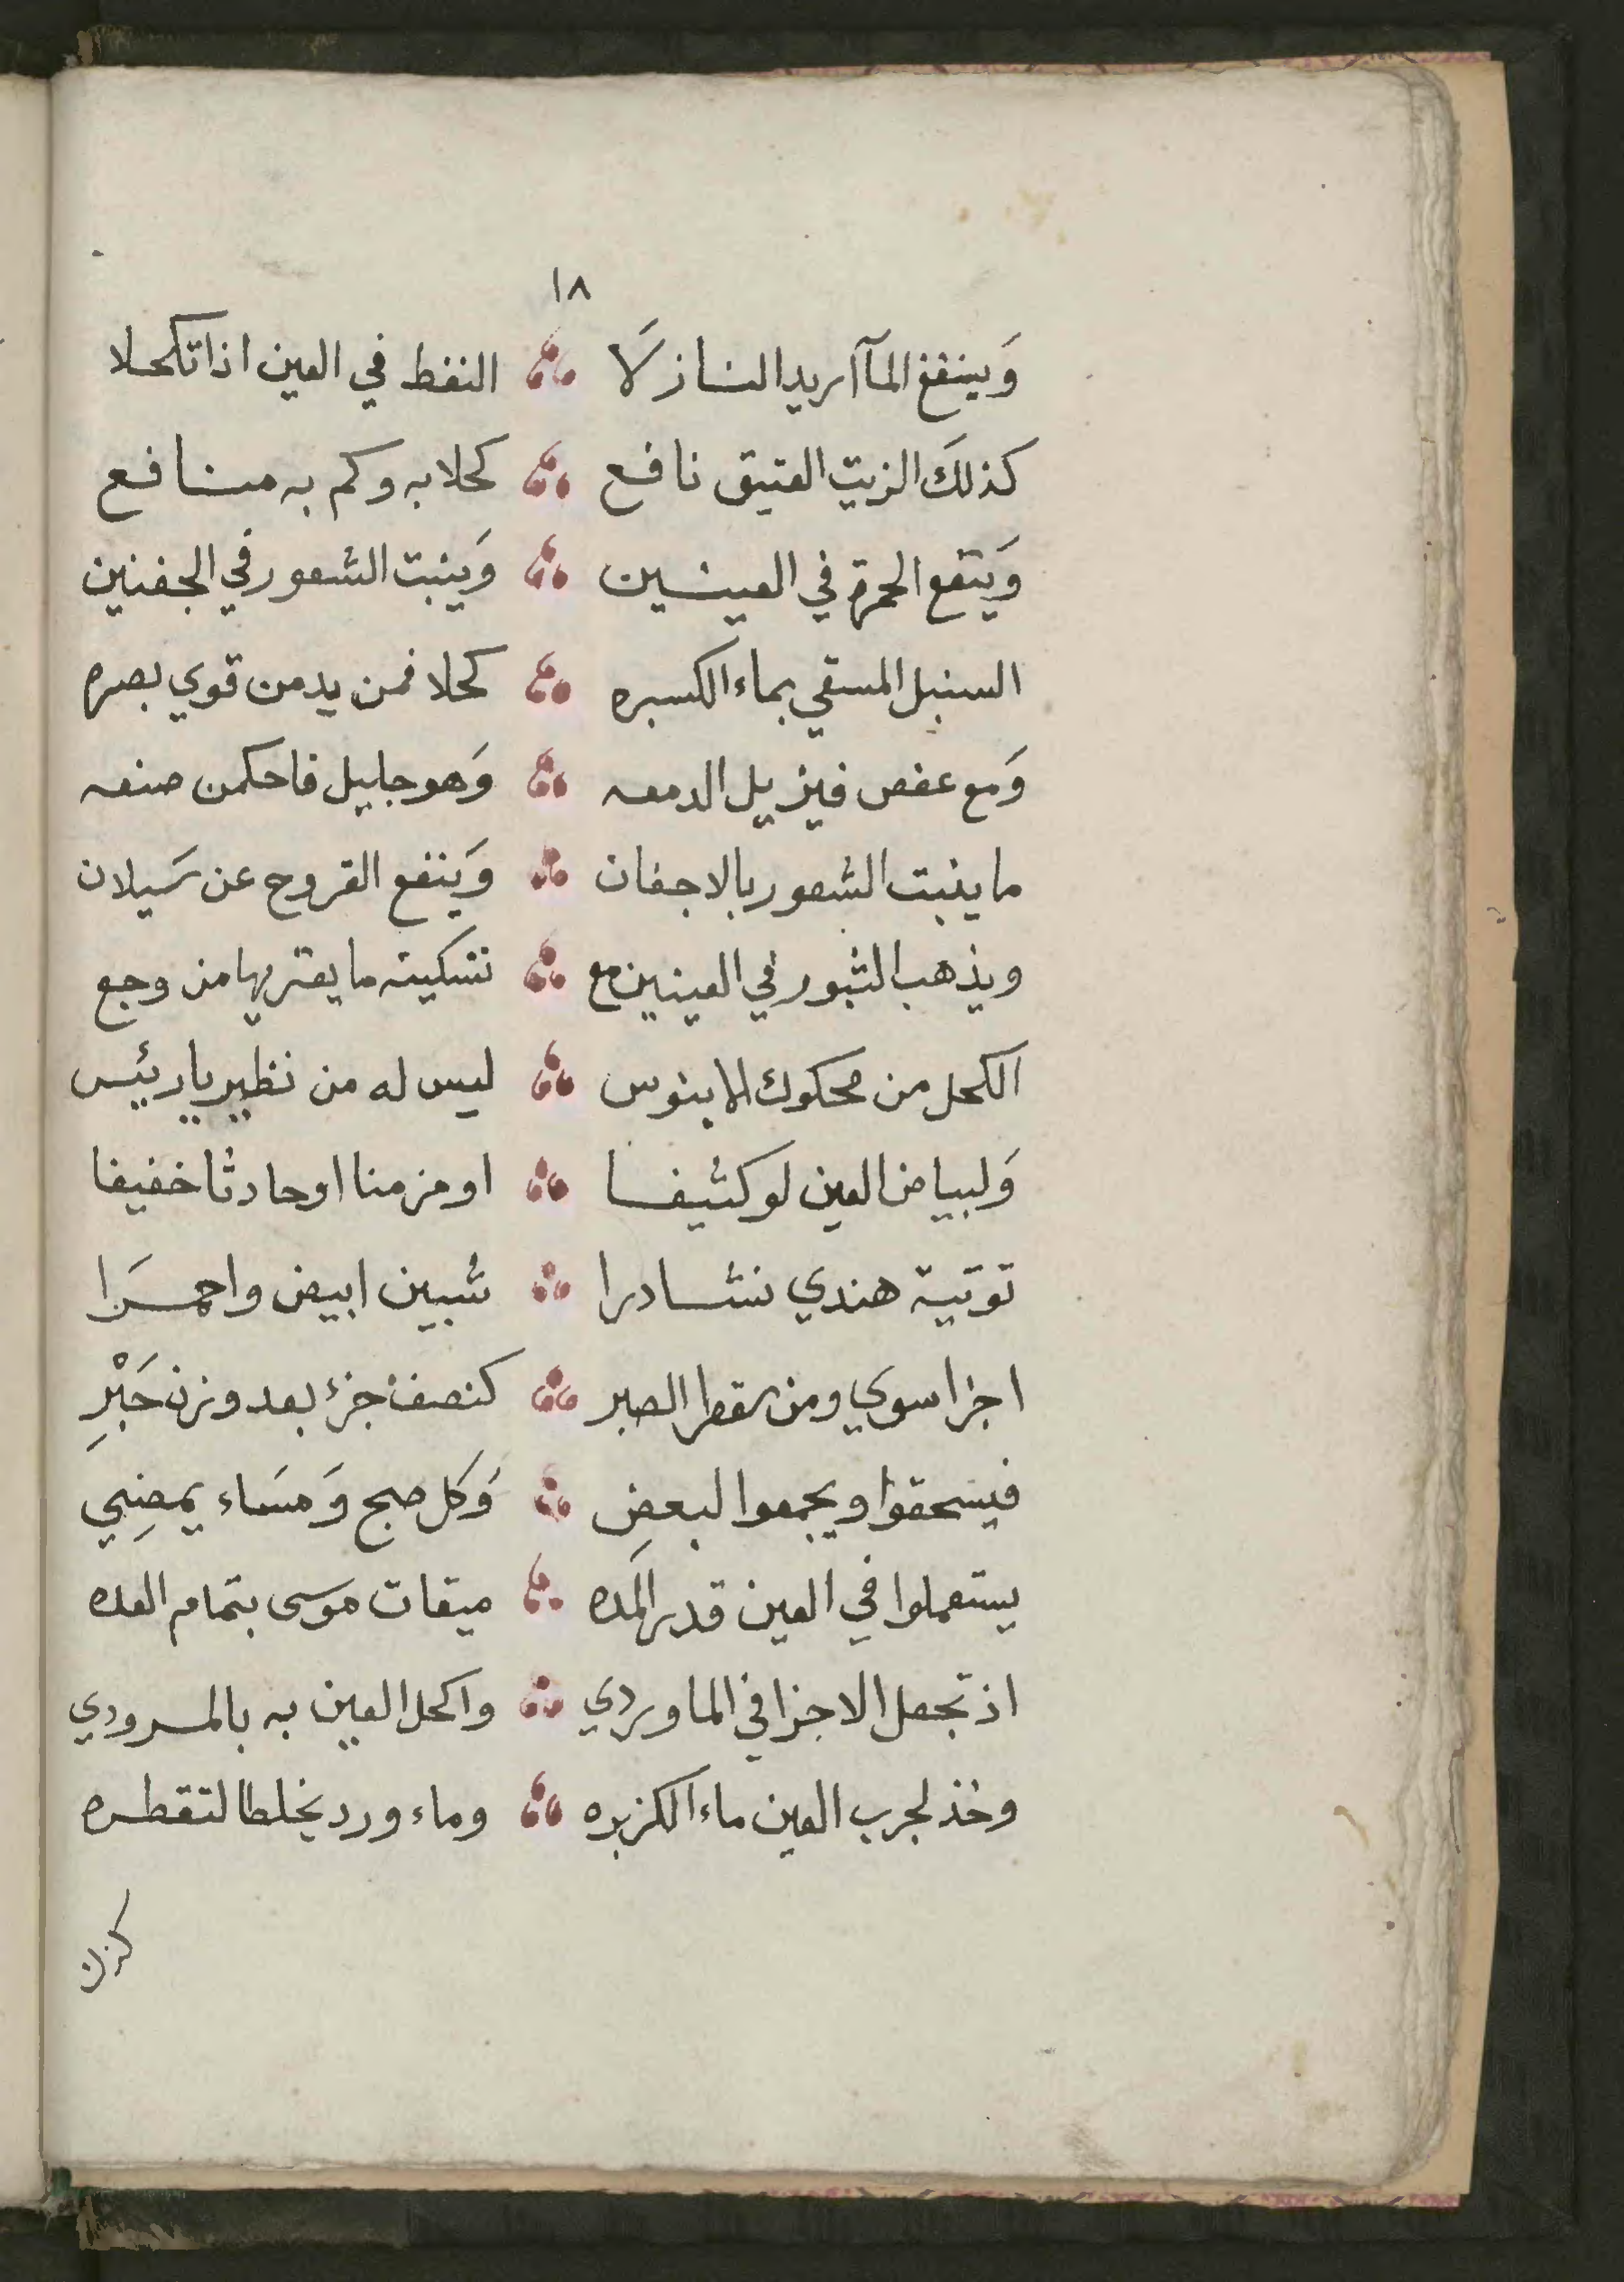 ١٨
وَينفع المآ اريد النازلَا النفط في العين اذا تكحلا
كذلكَ الزيت العتيق نافع كحلا به وكم به منافع
وَيتفع الحمرة في العينين وَينبت الشعور في الجفنين
السنبل المسقي بماء الكسبره كحلا فمن يدمن قوي بصره
وَمع عفص فيزيل الدمعه وَهو جليل فاحكمن صنعه
ما ينبت الشعور بالاجفان وَينفع القروح عن سَيلان
ويذهب الثبور في العينين مع تسكينه ما يعتريها من وجع
الكحل من محكوك الابنوس ليس له من نظير يا رئيس
وَلبياض العين لو كثيفا او مزمنا او حادثا خفيفا
توتية هندي نشادرا شبين ابيض واحمَرا
اجزا سوي ومن سقطر الصبر كنصف جزء بعد وزن حَبْرِ
فيسحقوا ويجمعوا لبعضِ وَكل صبح وَمسَاء يمضِي
يستعملوا في العين قدر المَده ميقات موسى بتمام العده
اذ تجعل الاجزا في الماوردي واكحل العين به بالمرودي
وخذ لجرب العين ماء الكزبره وماء ورد يخلطا لتقطره